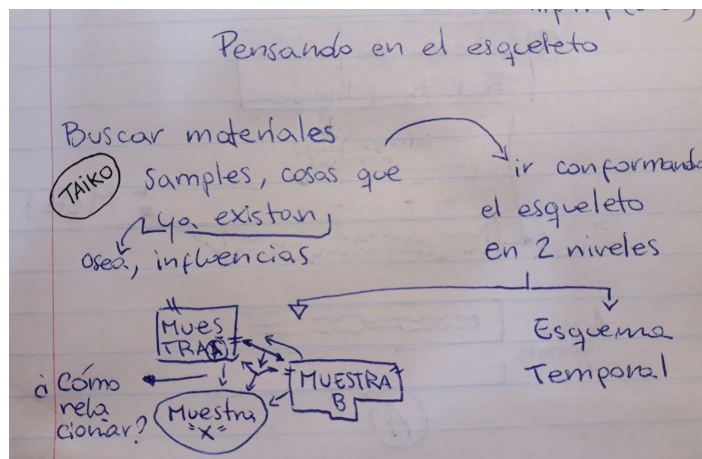 Pensando en el esqueleto
Buscar materiales
TAIKO
samples, cosas que
ya existan,
Osea, influencias
ir conformando
el esqueleto
en 2 niveles
MUES
TRA A
MUESTRA
B
Muestra
"X"
¿Cómo
rela
cionar?
Esquema
Temporal